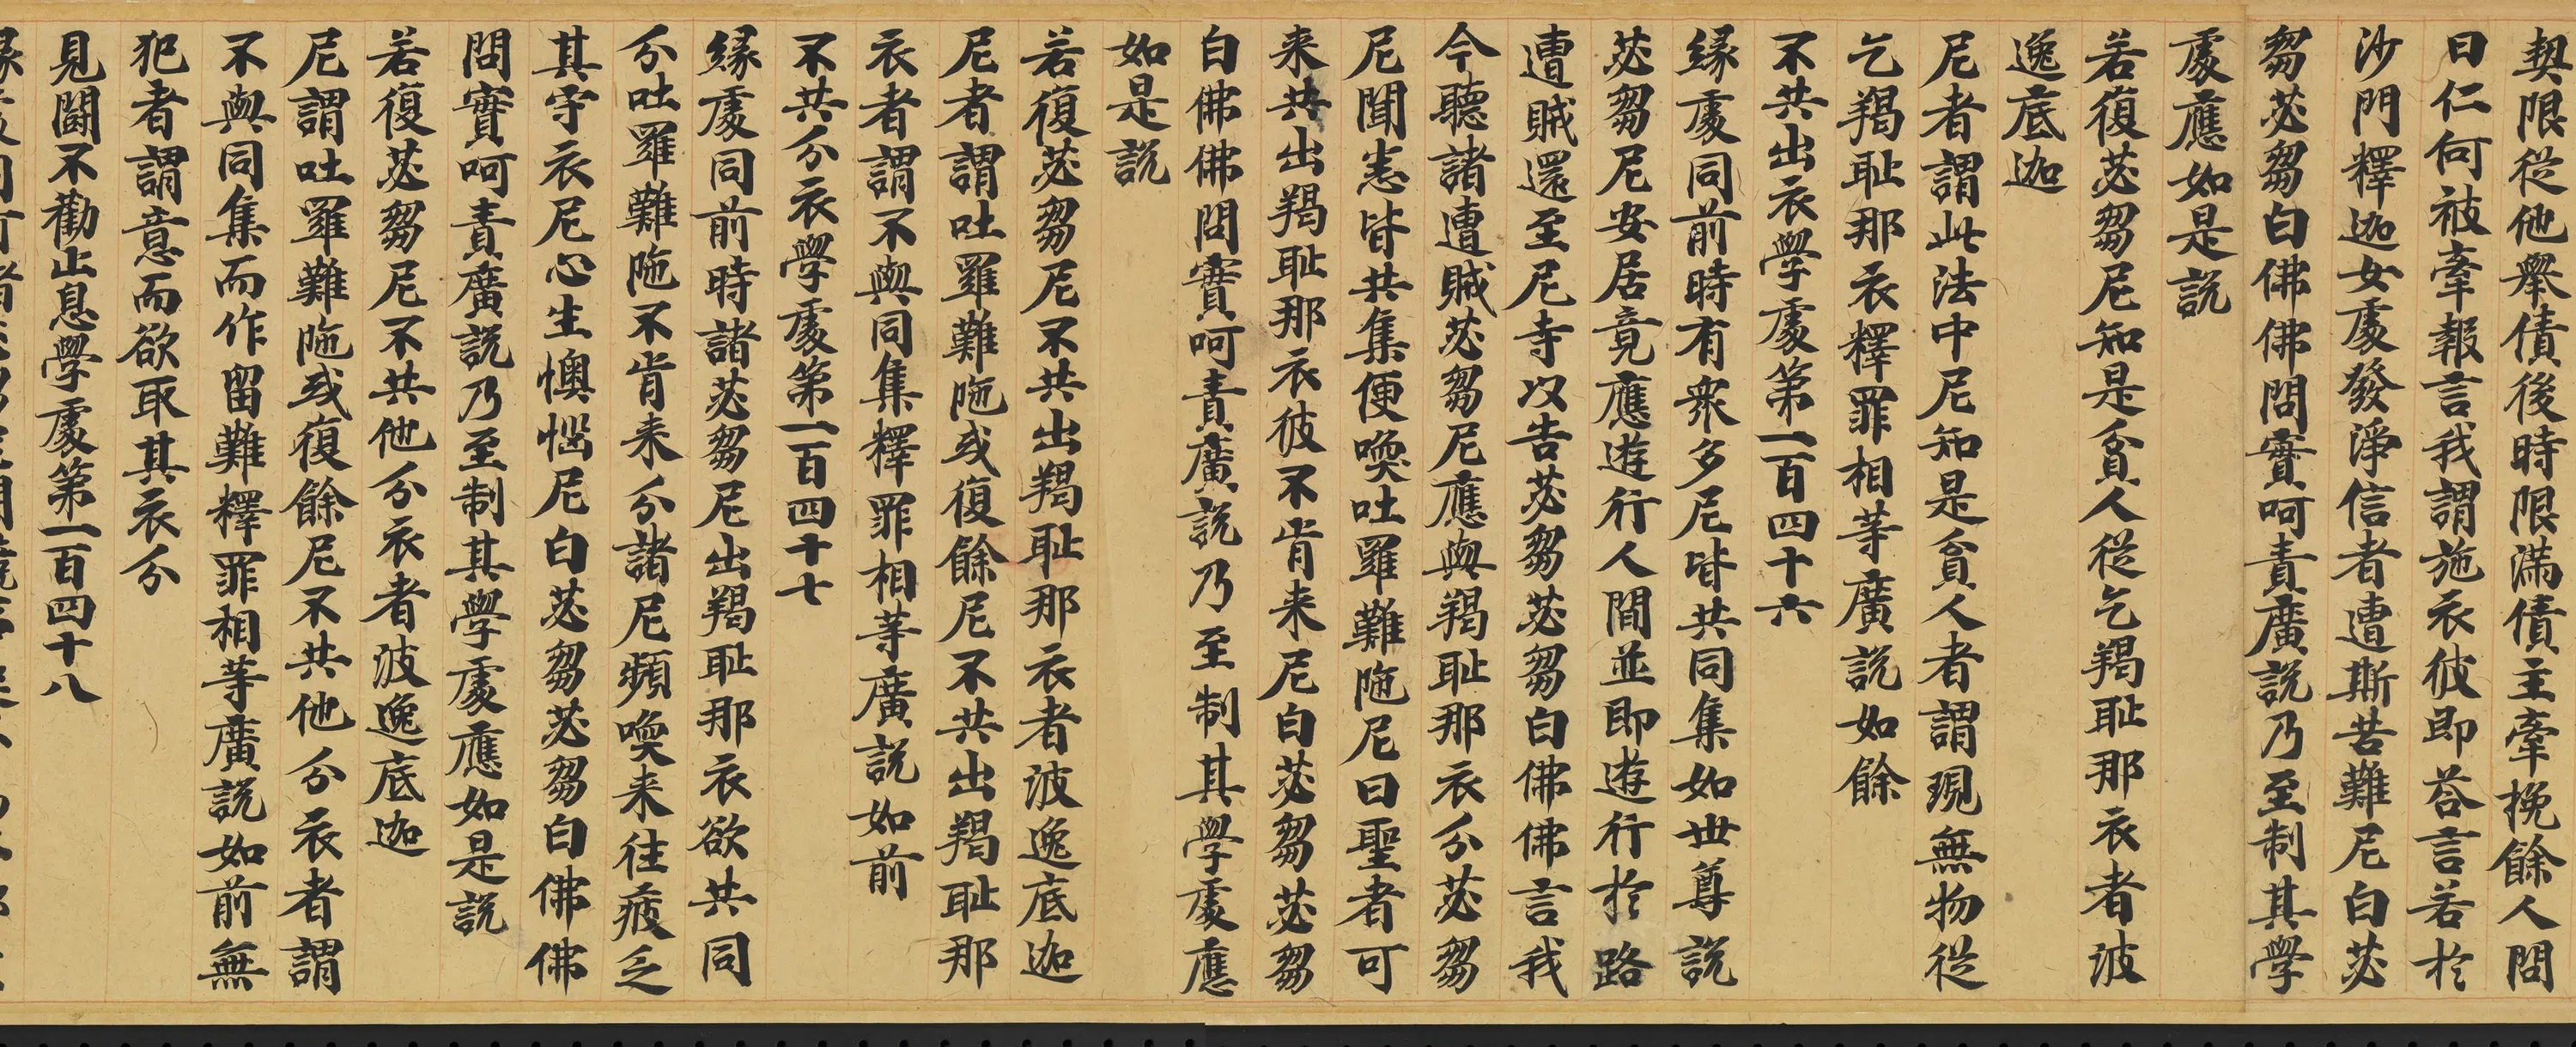 契限從他舉債後時限滿債主牽挽餘人問
曰仁何被牽報言我謂施衣彼即荅言若於
沙門釋迦女處發淨信者遭斯苦難尼白苾
芻苾芻白佛佛問實呵責廣說乃至制其學
處應如是說
若復苾芻尼知是貧人從乞羯耻那衣者波
逸底迦
尼者謂此法中尼知是貧人者謂現無物從
乞羯耻那衣釋罪相等廣說如餘
不共出衣學處第一百四十六
緣處同前時有衆多尼皆共同集如世尊說
苾芻尼安居竟應遊行人間並即遊行於路
遭賊還至尼寺以告苾芻苾芻白佛佛言我
今聽諸遭賊苾芻尼應與羯耻那衣分苾芻
尼聞悉皆共集便喚吐羅難陁尼曰聖者可
来共出羯耻那衣彼不肯来尼白苾芻苾芻
白佛佛問實呵責廣說乃至制其學處應
如是說
若復苾芻尼不共出羯耻那衣者波逸底迦
尼者謂吐羅難陁或復餘尼不共出羯耻那
衣者謂不與同集釋罪相等廣說如前
不共分衣學處第一百四十七
緣處同前時諸苾芻尼出羯耻那衣欲共同
分吐羅難陁不肯来分諸尼頻喚来往疲乏
其守衣尼心生懊惱尼白苾芻苾芻白佛佛
問實呵責廣說乃至制其學處應如是說
若復苾芻尼不共他分衣者波逸底迦
尼謂吐羅難陁或復餘尼不共他分衣者謂
不與同集而作留難釋罪相等廣說如前無
犯者謂意而欲取其衣分
見鬪不勸止息學處第一百四十八